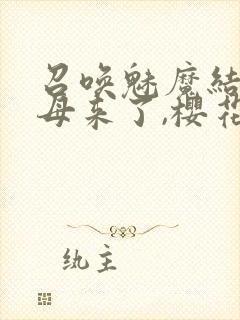 召唤魅魔结
母来了,樱花
纨主